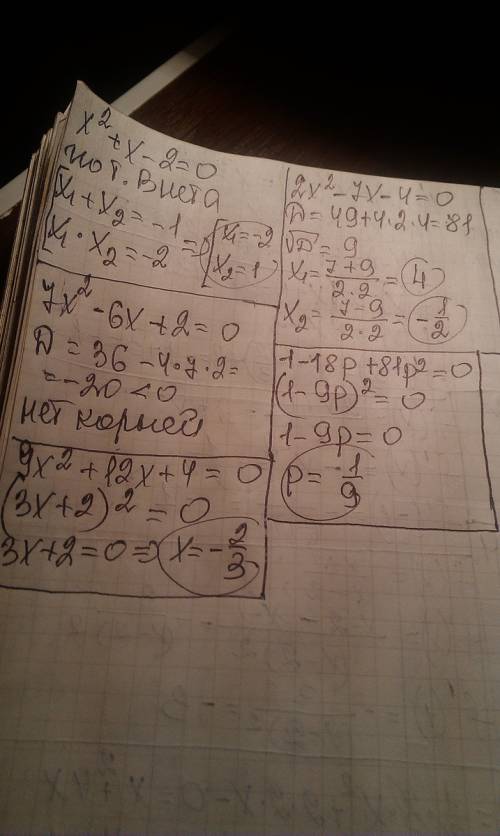 x² + x - 2 = 0
по т. Виета
[x₁ + x₂ = -1
[x₁ · x₂ = -2 => [x₁ = -2
x₂ = 1
7x² - 6x + 2 = 0
D = 36 - 4·7·2 =
= -20 < 0
нет корней
9x² + 12x + 4 = 0
(3x + 2)² = 0
3x + 2 = 0 => x = -2/3
2x² - 7x - 4 = 0
D = 49 + 4·2·4 = 81
√D = 9
x₁ = (7+9)/(2·2) = 4
x₂ = (7-9)/(2·2) = -1/2
1 - 18p + 81p² = 0
(1 - 9p)² = 0
1 - 9p = 0
p = 1/9